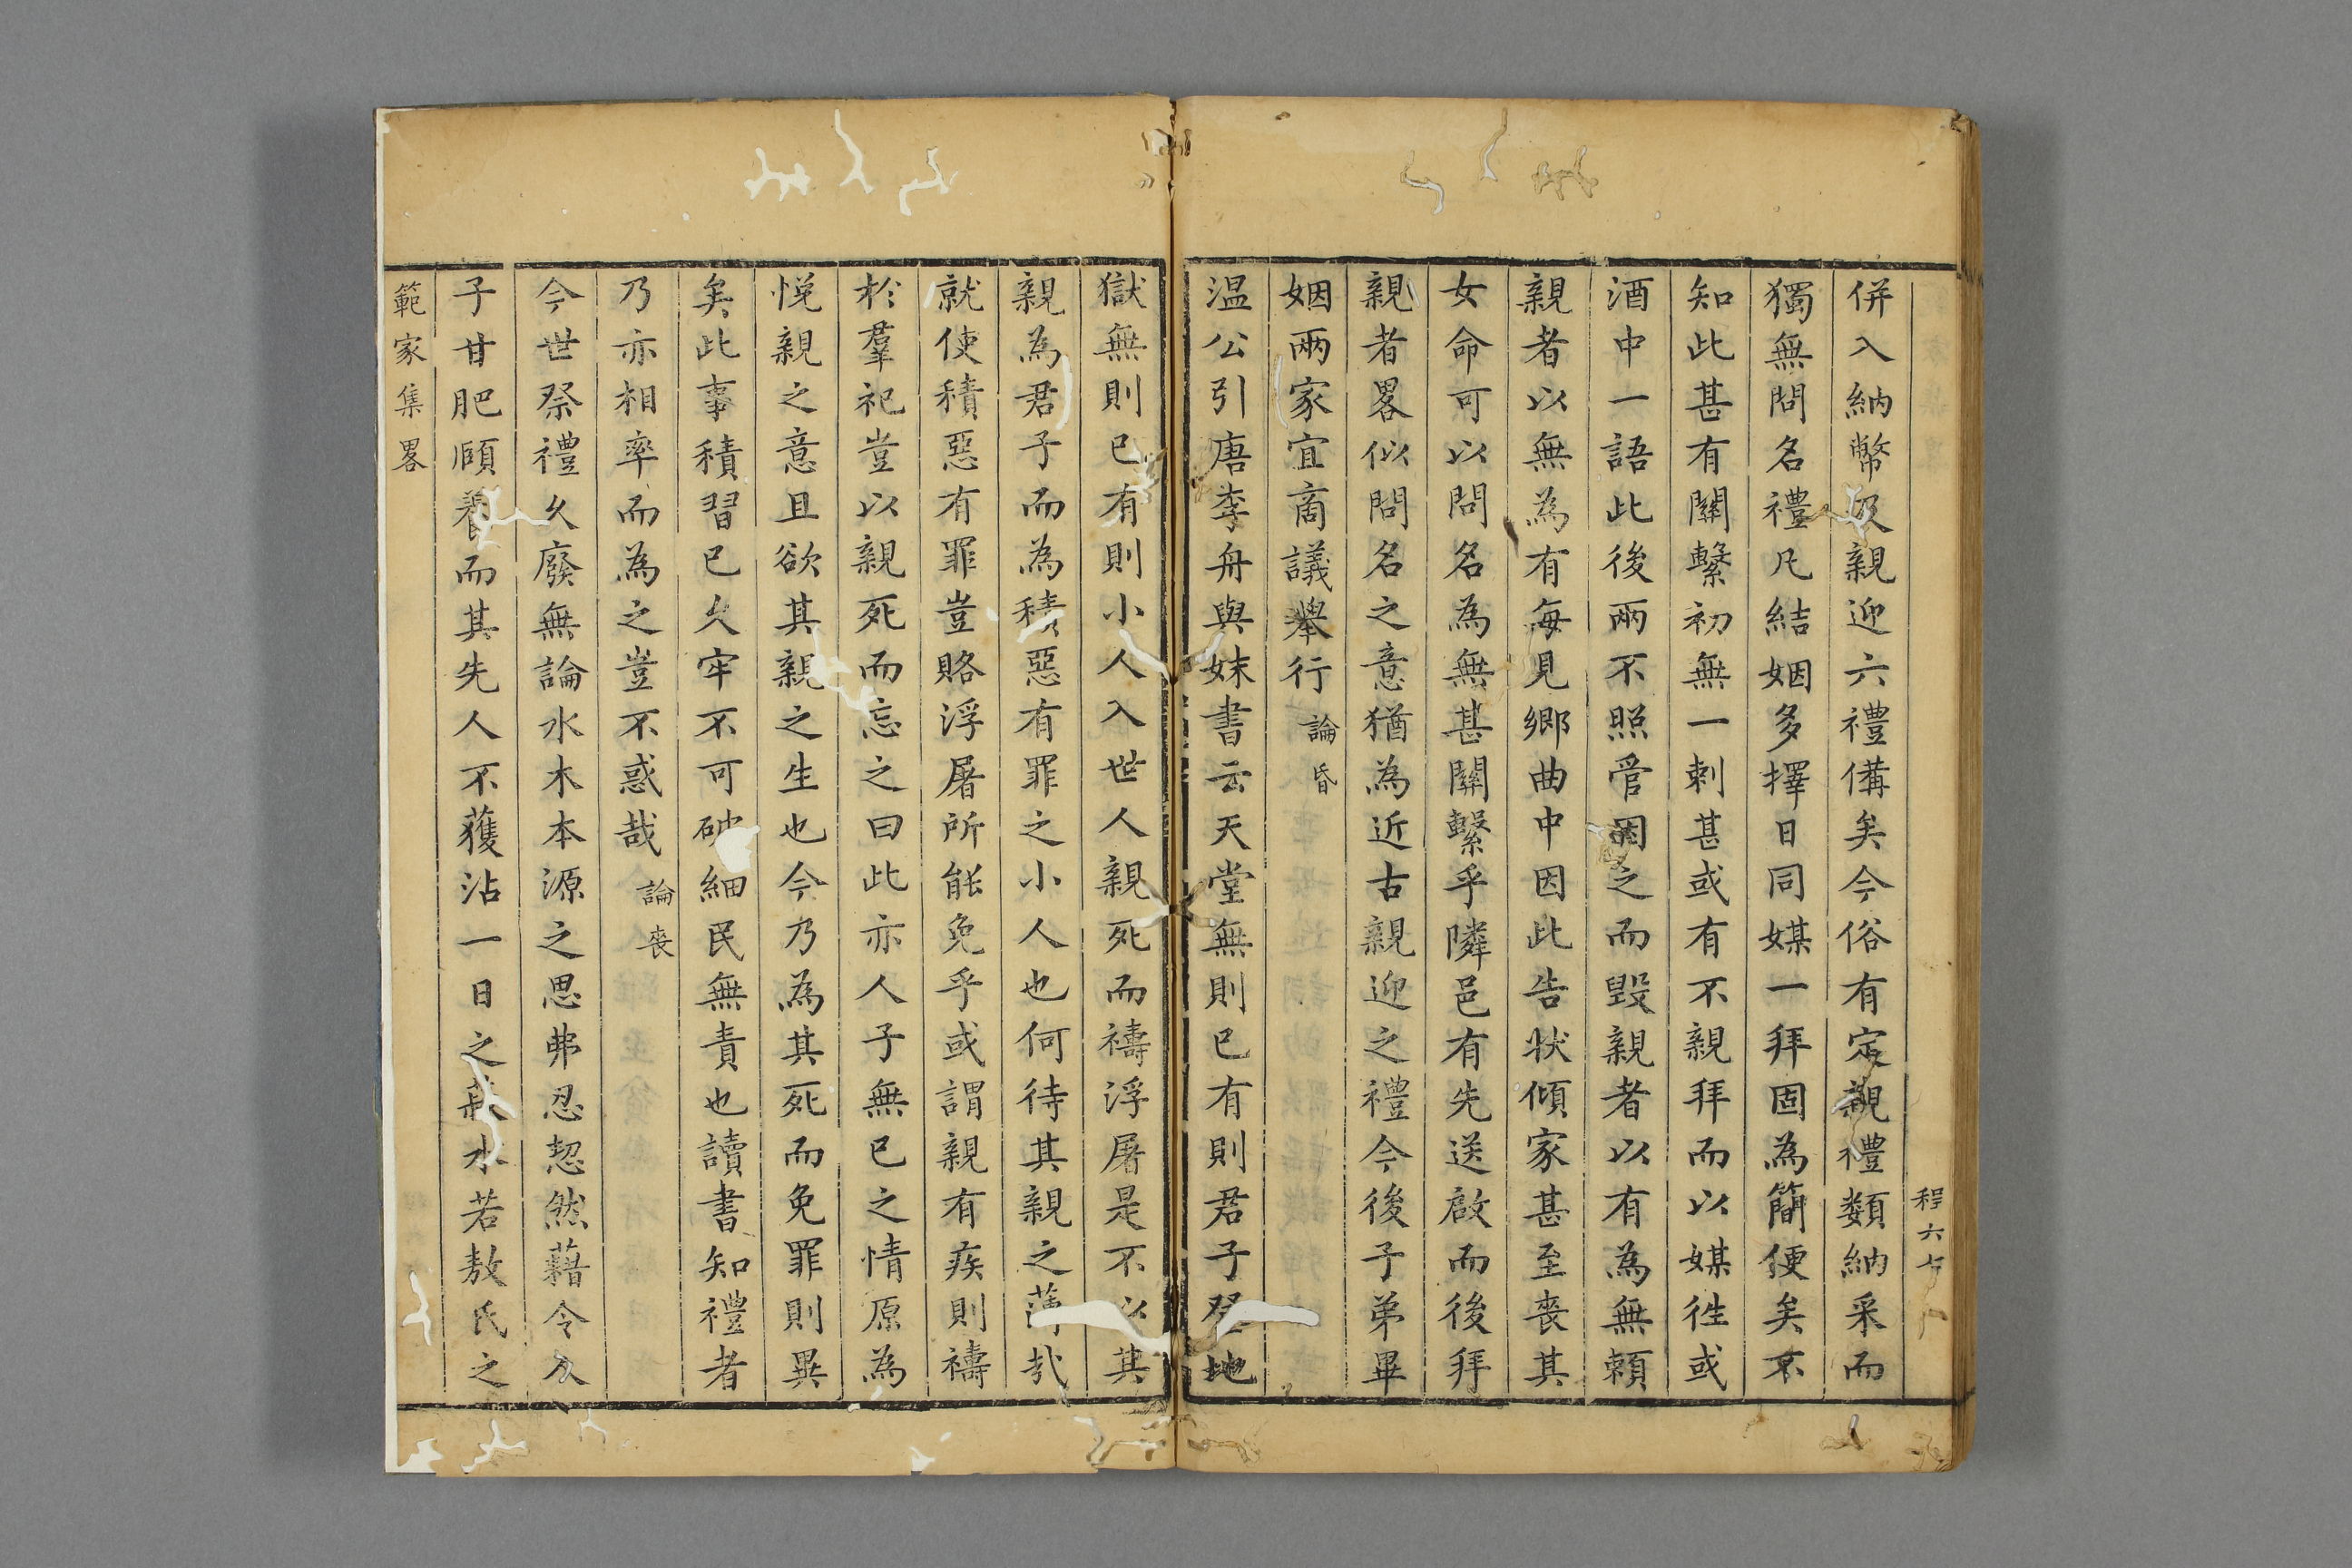 程六
併入納幣及親迎六禮備矣今俗有定親禮類納采而
獨無問名禮凡結姻多擇日同媒一拜固為簡便矣不
知此甚有關繫初無一刺甚或有不親拜而以媒徃或
酒中一語此後兩不照管因之而毀親者以有為無賴
親者以無為有每見鄉曲中因此告狀傾家甚至喪其
女命可以問名為無甚關繫乎隣邑有先送啟而後拜
親者畧似問名之意猶為近古親迎之禮今後子弟畢
姻兩家宜啇議舉行論昏
温公引唐李舟與妹書云天堂無則已有則君子登地
獄無則已有則小人入世人親死而禱浮屠是不以其
親為君子而為積惡有罪之小人也何待其親之薄㢤
就使積惡有罪豈賂浮屠所能免乎或謂親有疾則禱
於羣祀豈以親死而忘之曰此亦人子無已之情原為
悅親之意且欲其親之生也今乃為其死而免罪則異
矣此事積習已久牢不可破細民無責也讀書知禮者
乃亦相率而為之豈不惑哉論喪
今世祭禮久廢無論水木本源之思弗忍恝然藉令人
子甘肥頤養而其先人不獲沾一日之菽水若敖氏之
範家集畧